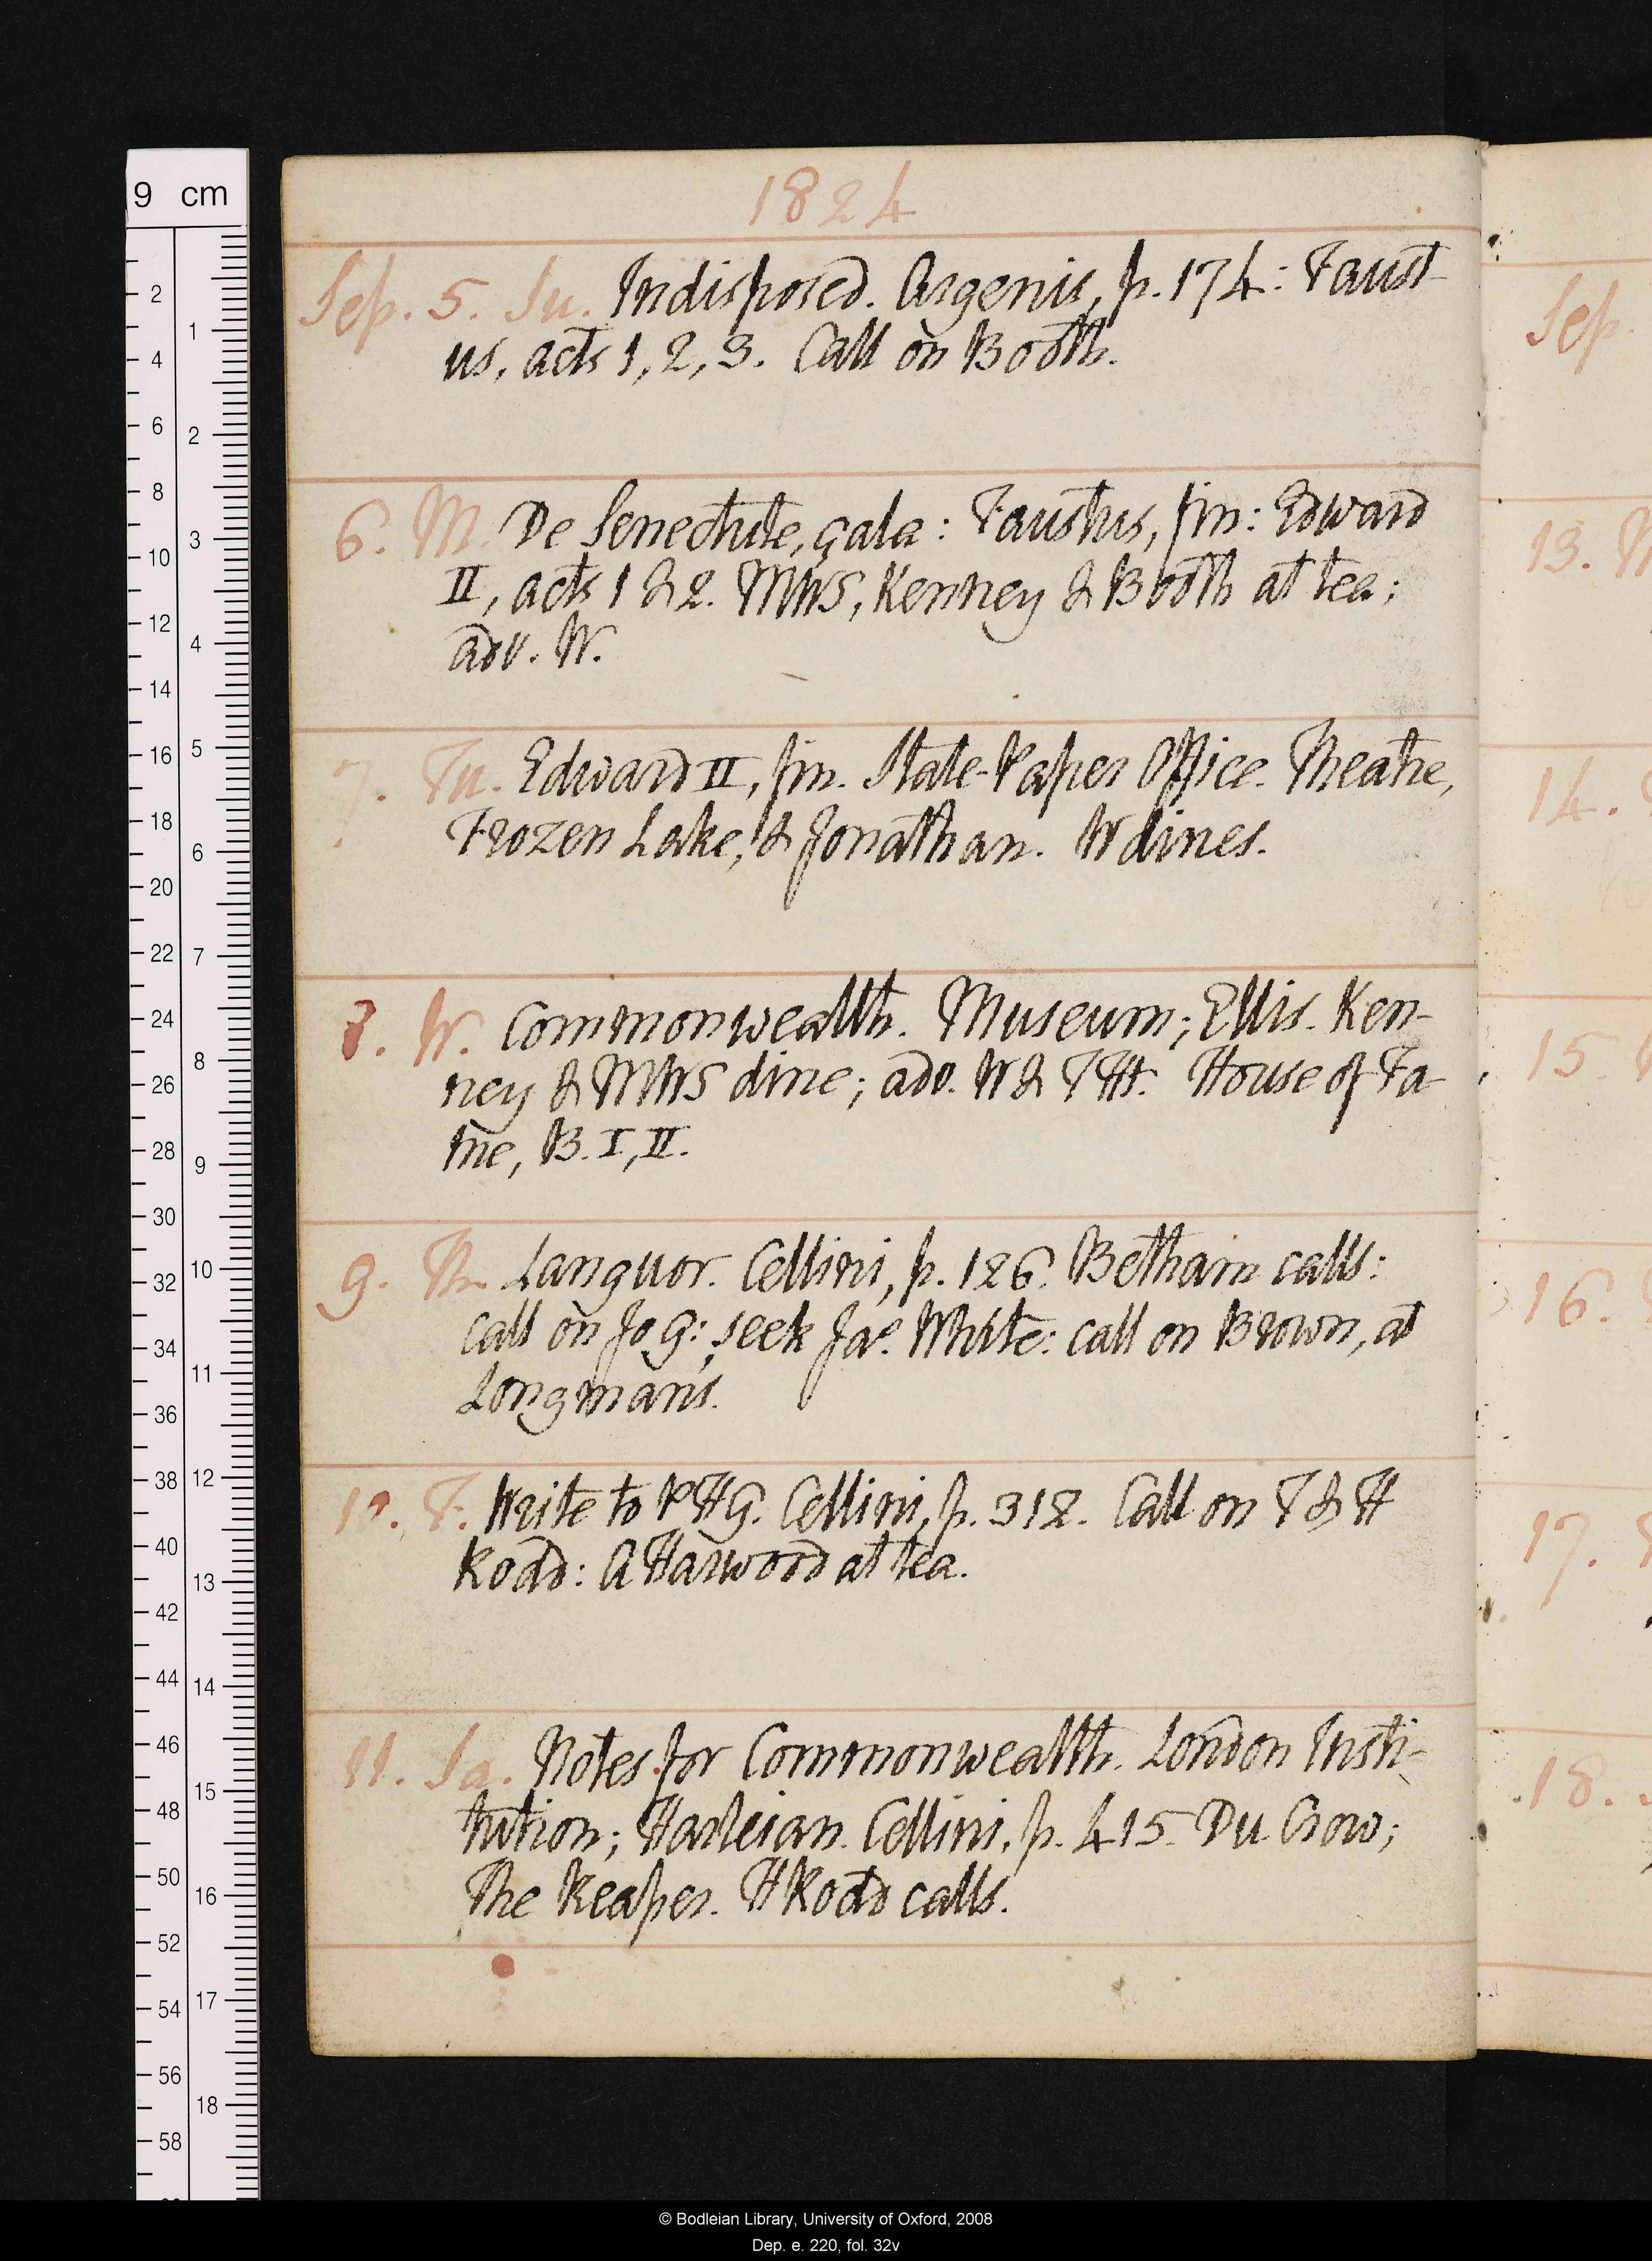 9 cm
1824
Sep. 5. Su. Indisposed. Argenis, p. 174: Faust-
us, acts 1, 2, 3. Call on Booth.
6. M. De Senectute, çala: Faustus, fin: Edward
II, acts 1 & 2. MWS, Kenney & Booth at tea;
adv. W.
7. Tu. Edward II, fin. State-Paper Office. Theatre,
Frozen Lake, & Jonathan. W dines.
8. W. Commonwealth. Museum; Ellis. Ken-
ney & MWS dine; adv. W & THt. House of Fa-
me, B. I, II.
9. Th. Languor. Cellini, p. 126. Betham calls:
call on Jo G: seek Jas White: call on Brown, at
Longman's.
10. F. Write to PHG. Cellini, p. 312. Call on T & H
Rodd: A Harwood at tea.
11. Sa. Notes for Commonwealth. London Insti-
tution; Harleian. Cellini, p. 415. Du Crow;
The Reaper. H Rodd calls.
Sep.
13. M
14.
15.
16.
17.
18.
© Bodleian Library, University of Oxford, 2008
Dep. e. 220, fol. 32v